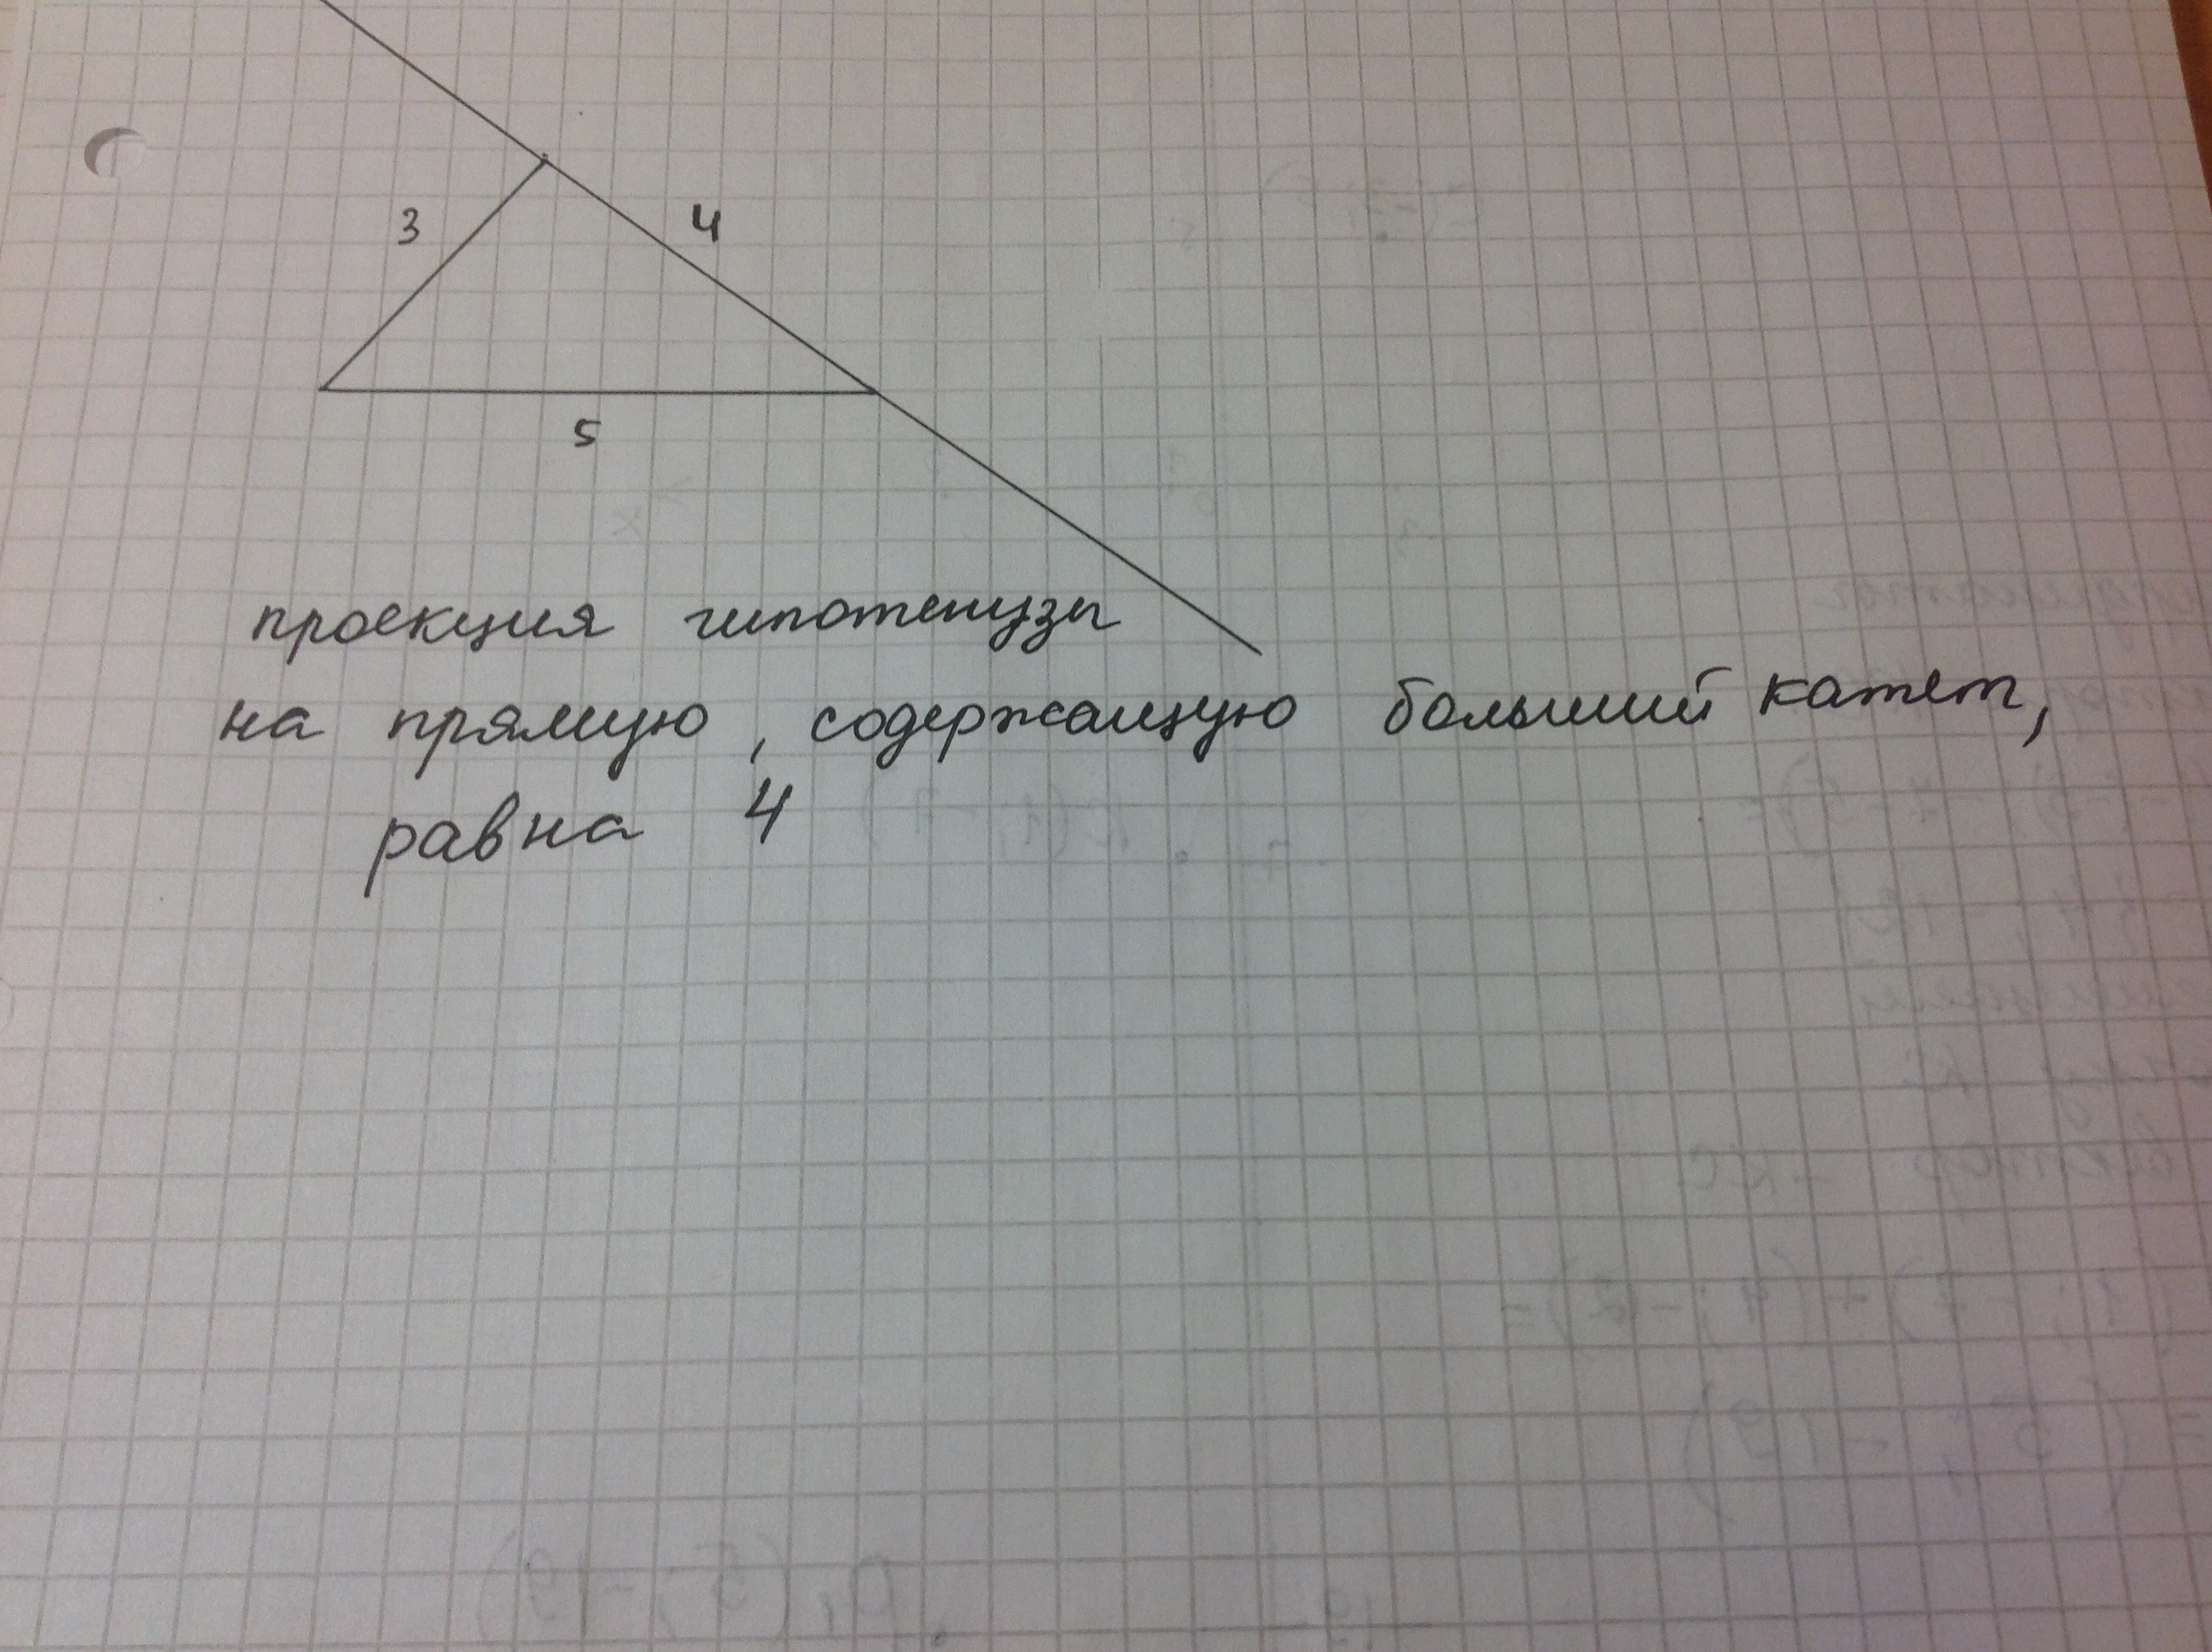 3
4
5
проекция гипотенузы
на прямую, содержащую больший катет,
равна 4